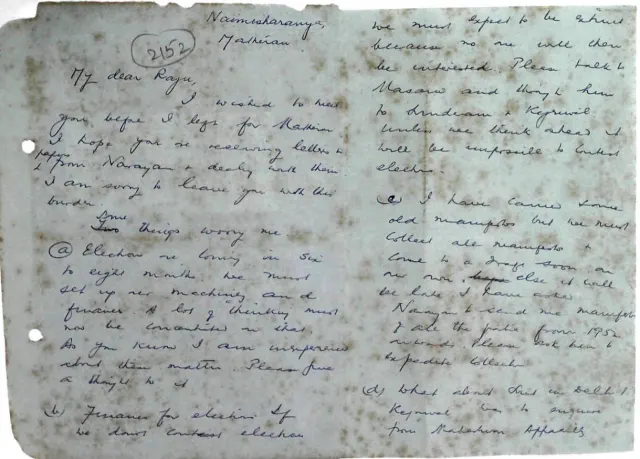 Naimisharanya,
Matheran
2152
My dear Raju,
I wished to meet
you before I left for Matheran
I hope you are receiving letters &
papers from Narayan & dealing with them.
I am sorry to leave you with this
burden.
Some things worry me
(a) Election are coming in six
to eight month. We must
set up our machinery and
finance. A lot of thinking must
now be concentrated on that.
As you know I am inexperienced
about these matters. Please give
a thought to it
(b) Finance for election If
we don't contest election
we must expect to be extinct
because no one will then
be interested. Please talk to
Masani and through him
to &
Unless we think ahead it
will be impossible to contest
election.
(c) I have carried some
old manifestos but we must
collect all manifesto &
come to a draft soon on
our own, else it will
be late I have asked
Narayan to send me manifesto
of all the parties from 1952
onwards. Please ask him to
expedite collection
(d) What about in Delhi?
was to enquire
from